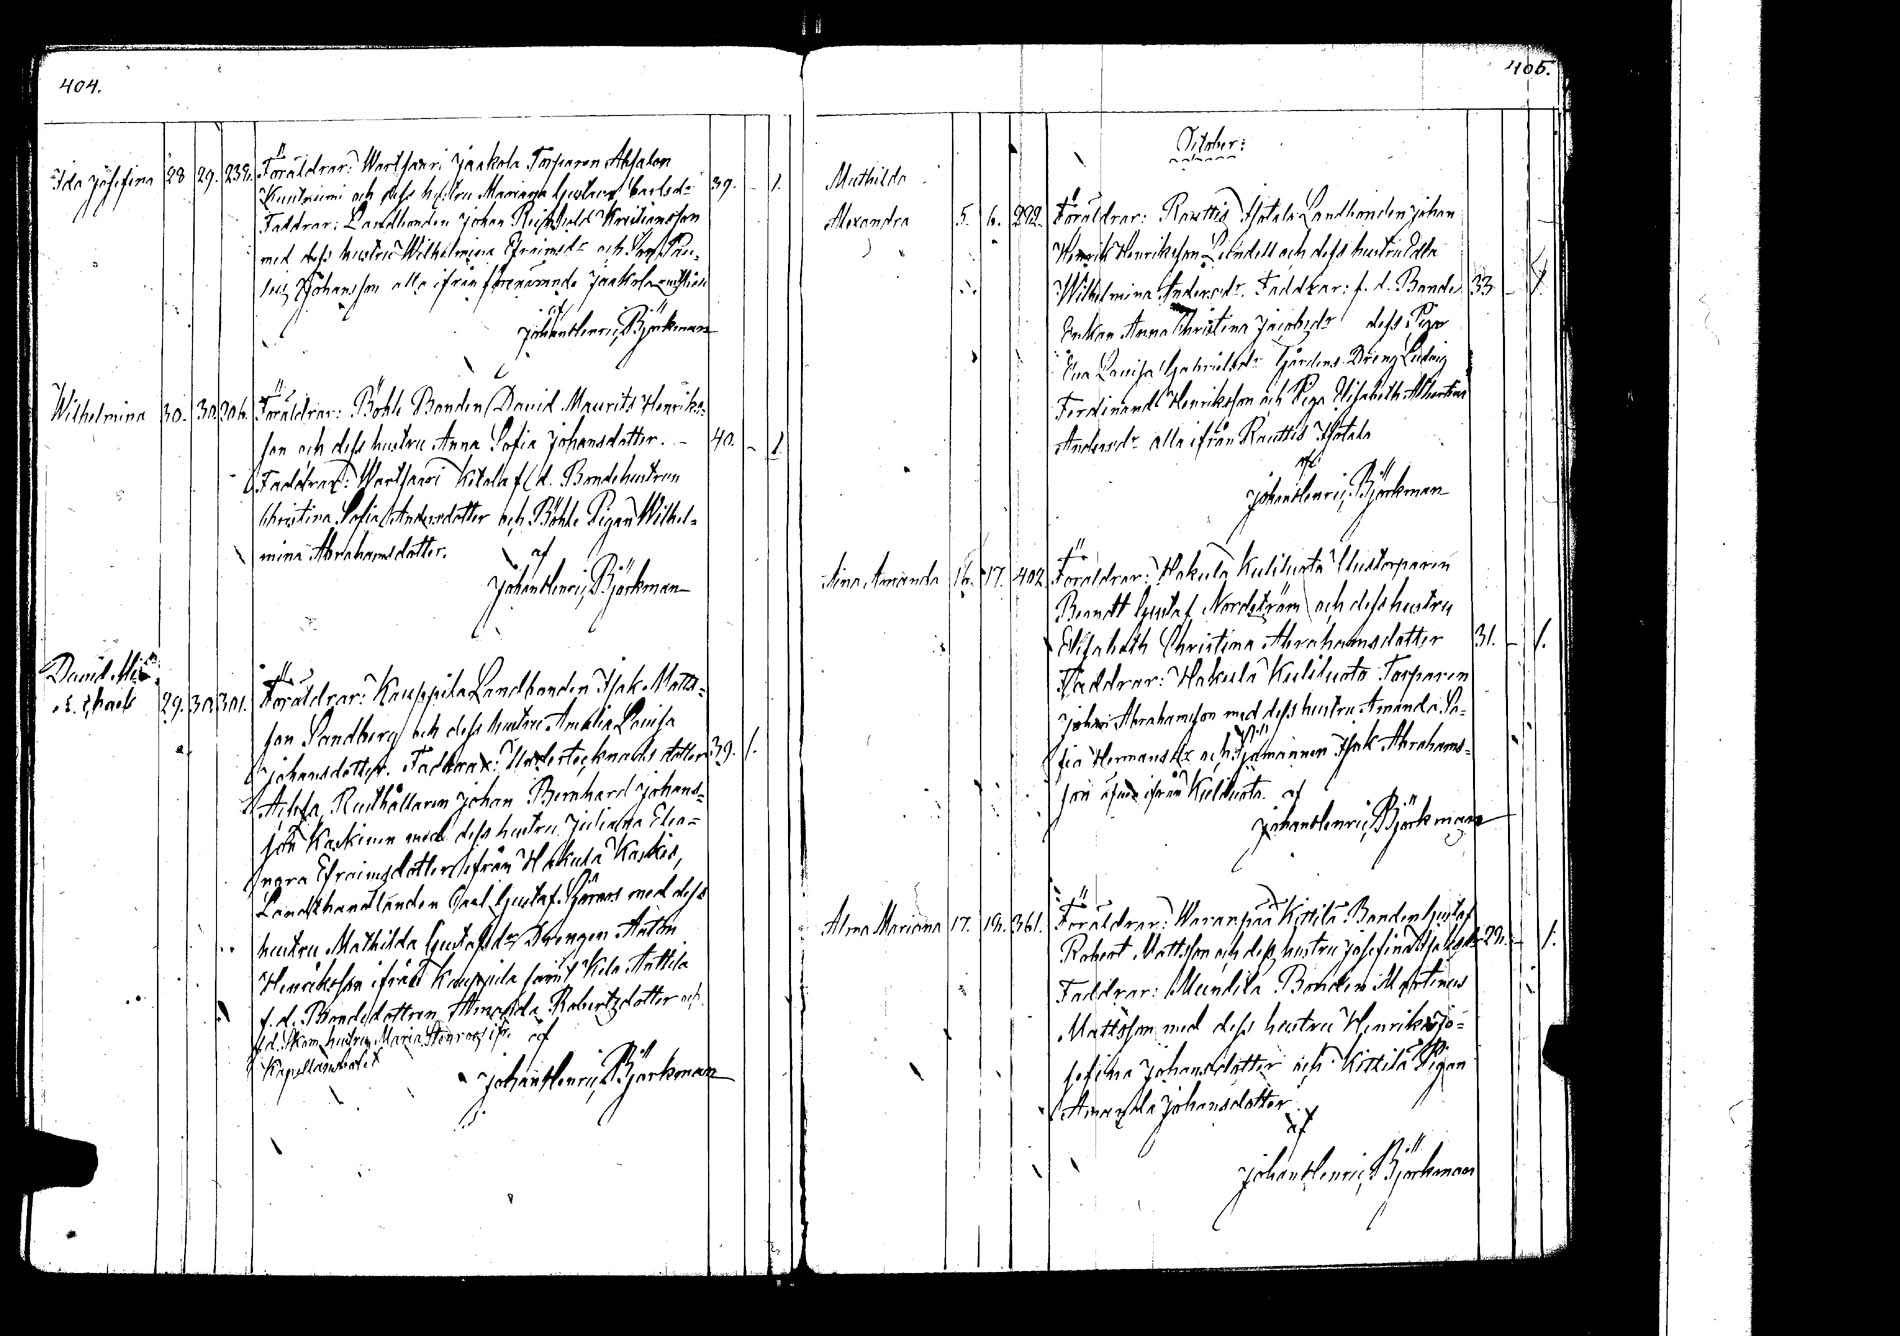 404.
Ida Josefina 28 29. 238. Föräldrar: Wartsaari Jaakola Torparen Absalon
och dess hustru Mariana Gustava Carlsdr 39. - 1.
Faddrar: Landbonden Johan Kristiansson
med dess hustru Wilhelmina Efraimsdr och
Johansson alla ifrån förenämnde Jaakola
af
Johan Henric Björkman
Wilhelmina 30. 30. 306. Föräldrar: Böhle Bonden David Maurits Henriks-
son och dess hustru Anna Sofia Johansdotter. - 40. - 1.
Faddrar: Wartsaari Kitola f. d. Bondehustrun
Christina Sofia Andersdotter och Böhle Pigan Wilhel-
mina Abrahamsdotter. af
Johan Henric Björkman
David Mi-
chael 29. 30. 301. Föräldrar: Kauppila Landbonden Isak Matts-
son Sandberg och dess hustru Amalia Lovisa
Johansdotter. Faddrar: Undertecknads dotter 39. 1.
Rusthållaren Johan Bernhard Johans-
son Kaskinen med dess hustru Juliana Eleo-
nora Efraimsdotter ifrån Hakula Kaskis,
Landthandlanden Carl Gustaf med dess
hustru Mathilda Gustafsdr Drengen Anton
Henriksson ifrån Kauppila samt Kila Anttila
f. d. Bondedottren Amanda Robertsdotter och
f. d. Skom. hustrun Maria Stenroos ifr.
Kapellansbolet af
Johan Henric Björkman
405.
October:
Mathilda
Alexandra 5. 6. 292. Föräldrar: Rauttis Isotalo Landbonden Johan
Henrik Henriksson Lindell och dess hustru Edla
Wilhelmina Andersdr. Faddrar: f. d. Bonde 33 - 1.
Enkan Anna Christina Jacobsdr dess Piga
Eva Lovisa Gabrielsdr Gårdens Dreng Ludvig
Ferdinand Henriksson och Piga Elisabeth Albertina
Andersdr alla ifrån Rauttis Isotalo
af
Johan Henric Björkman
Amanda 16. 17. 402 Föräldrar: Hakula Kuliluoto Torparen
Berndt Gustaf Nordström och dess hustru
Elisabeth Christina Abrahamsdotter 31. - 1.
Faddrar: Hakula Kuliluoto Torparen
Johan Abrahamsson med dess hustru Amanda So-
fia Hermansdr och Sjömannen Isak Abrahams-
son ifrån Kuliluoto. af
Johan Henric Björkman
Alma Mariana 17. 19. 361. Föräldrar: Waranpää Kittilä Bonden Gustaf
Robert Mattsson och dess hustru Josefina 29. - 1.
Faddrar: Mundila Bonden Martinus
Mattsson med dess hustru Henrika Jo-
sefina Johansdotter och Kittilä Pigan
Amanda Johansdotter
af
Johan Henric Björkman